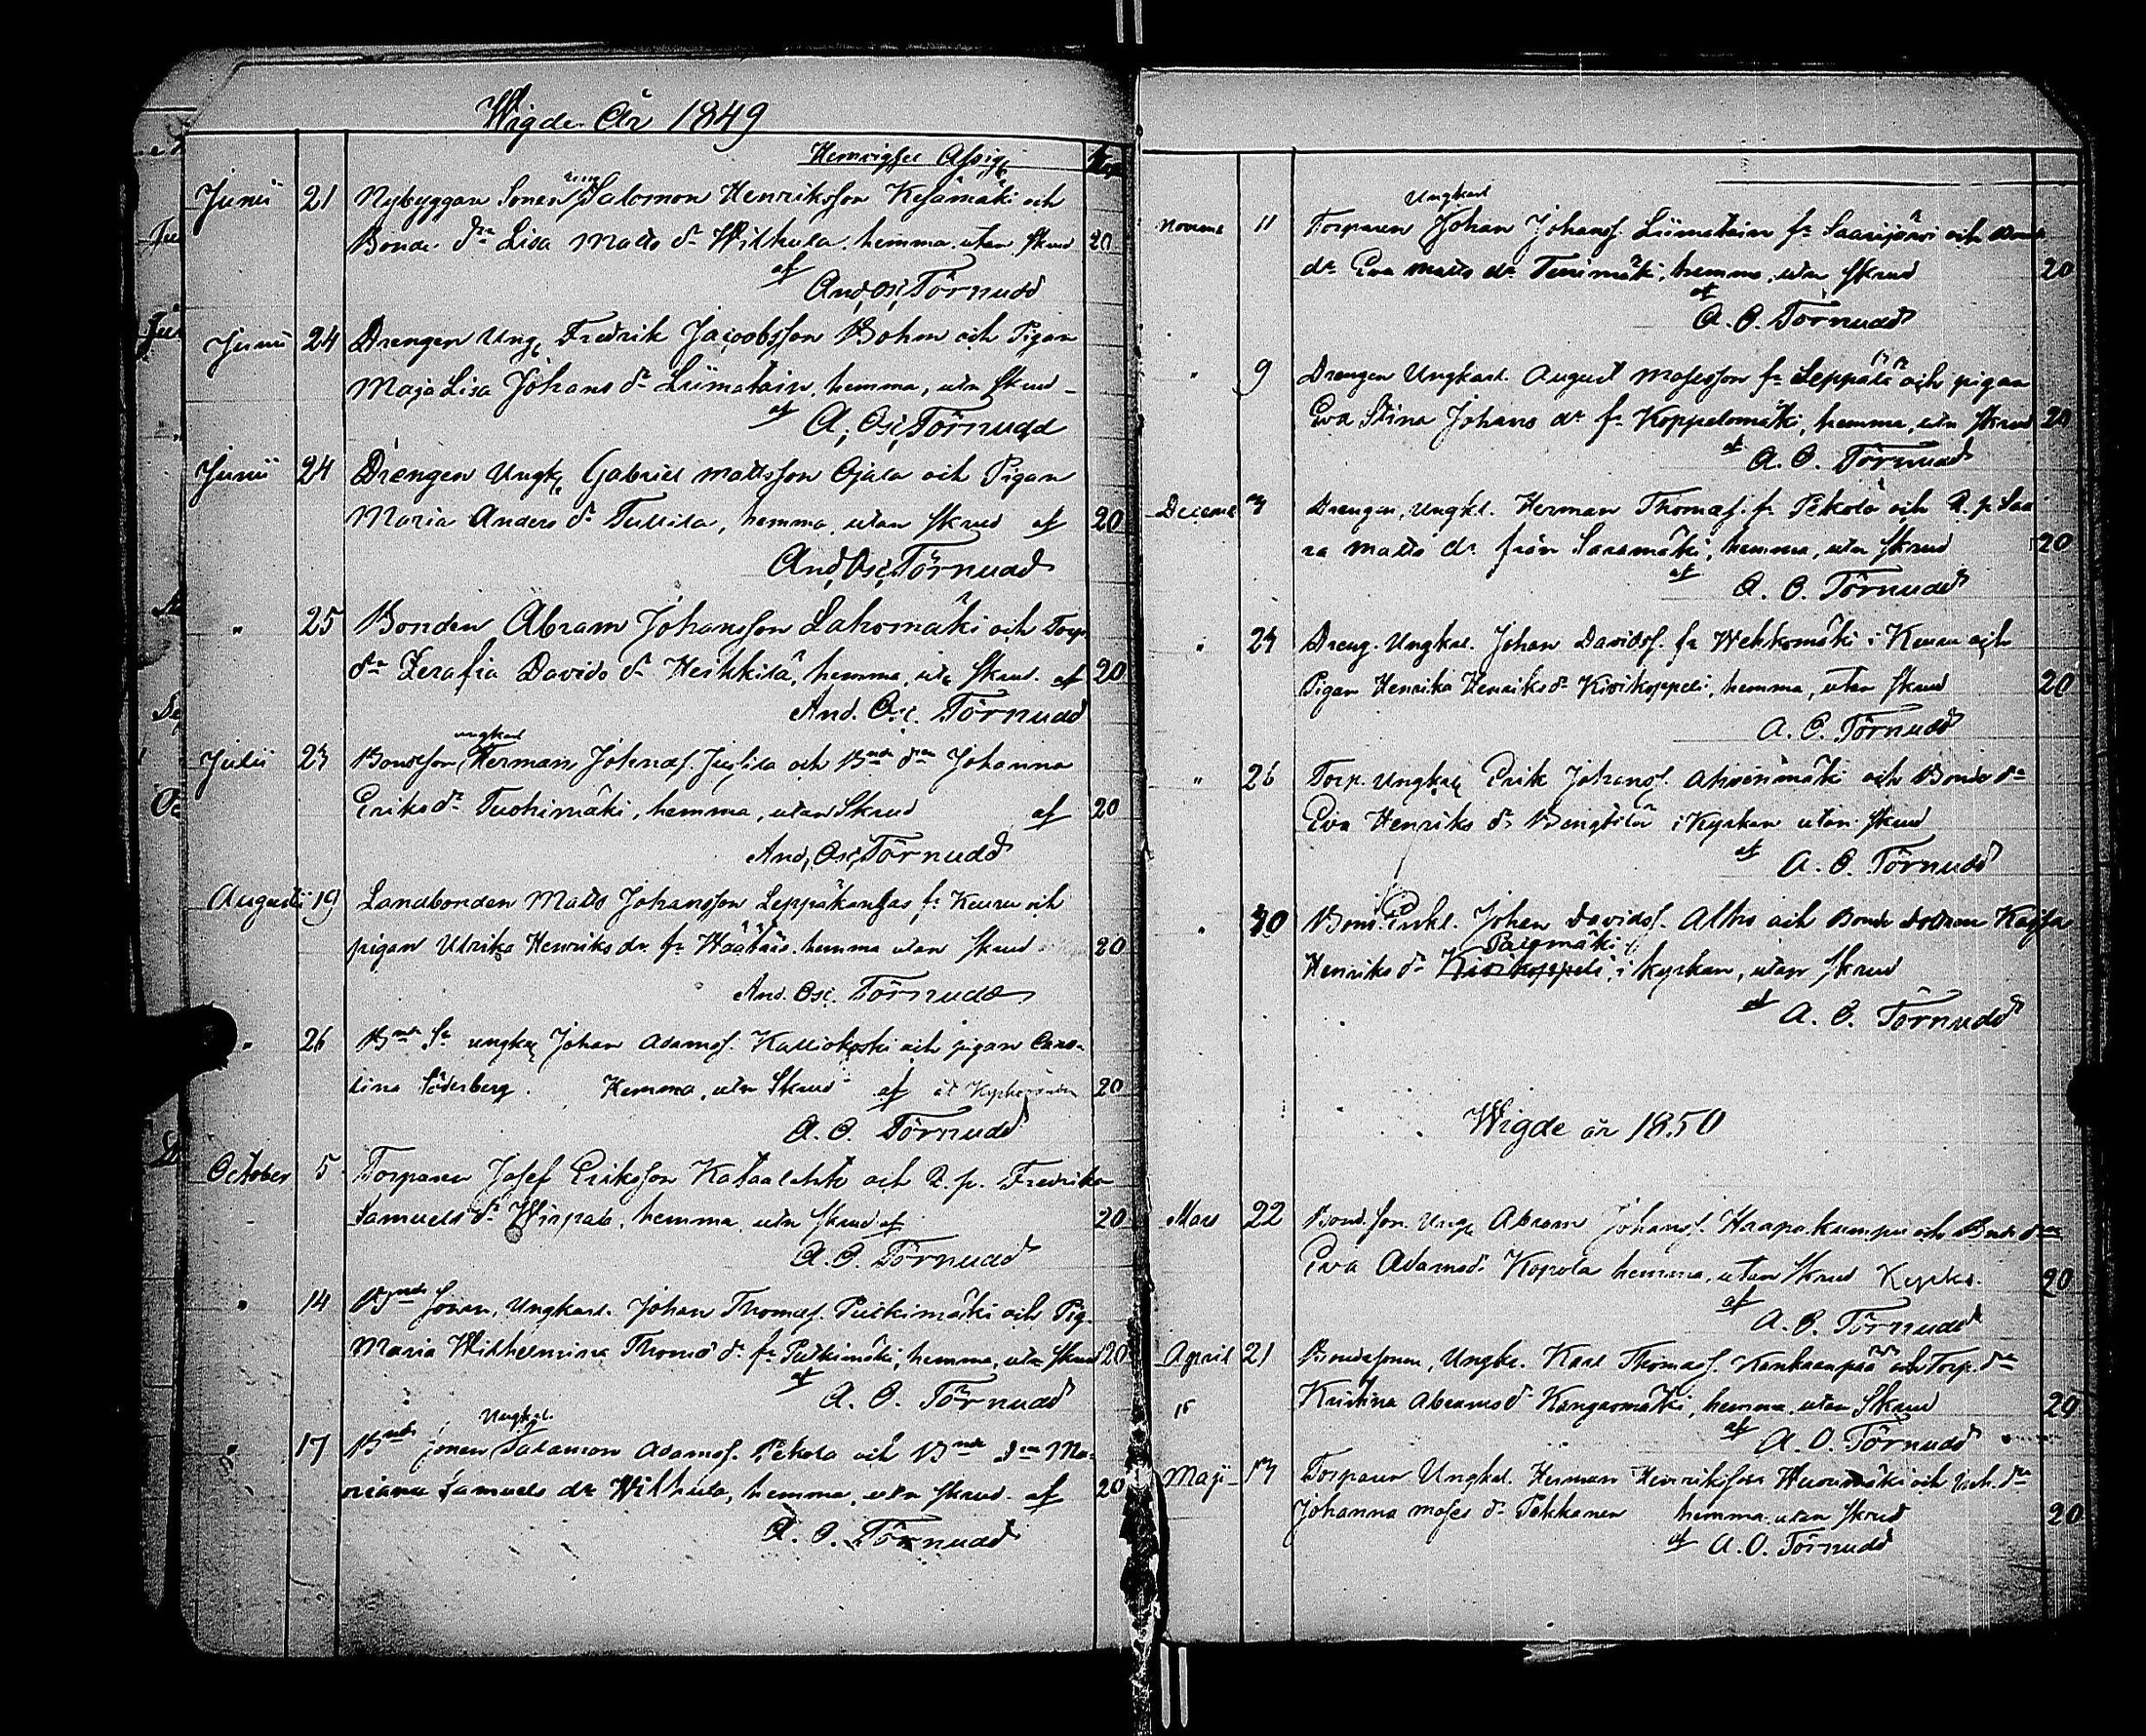 Wigde År 1849
Hemvigsel Afgift Kop
Junii 21 Nybyggare Sonen Ung Salomon Henriksson Kesämäki och
Bonde dr Lisa Matts dr Wilhula hemma utan Skrud 20
af And. Osc. Törnudd
Junii 24 Drengen Ung. Fredrik Jacobsson Bohm och Pigan
Maja Lisa Johans dr Liimatain, hemma, utan Skrud
af A. Osc. Törnudd
Junii 24 Drengen Ungk. Gabriel Mattsson Ojala och Pigan
Maria Anders dr Tullila, hemma utan Skrud af 20
And. Osc. Törnudd
" 25 Bonden Abram Johansson Lahomäki och Torp.
dr Serafia Davids dr Heikkilä, hemma, utan Skrud. af 20
And. Osc. Törnudd
Julii 23 Bondeson ungkarl Herman Johnas. och Bnde drn Johanna
Eriks dr Tuohimäki, hemma, utan Skrud af 20
And. Osc. Törnudd
Augusti 19 Landbonden Matts Johansson Leppäkangas fr Keuru och
pigan Ulrika Henriks dr fr Wäätäis. hemma utan Skrud 20
And. Osc. Törnudd
" 26 Bnde Sn ungka Johan Adamss. Kalliokoski och pigan Caro-
lina Söderberg. Hemma, utan Skrud af 20
A. O. Törnudd
October 5 Torparen Josef Eriksson Kataalahti och Q. p. Fredrika
Samuels dr Wirpala, hemma, utan Skrud af 20
A. O. Törnudd
" 14 Bonde Sonen, Ungkarl. Johan Thomass. Pulkimäki och Pig.
Maria Wilhelmina Thomas dr fr Pulkimäki, hemma, utan Skrud 20
af A. O. Törnudd
" 17 Bnde Sonen Ungkal. Salamon Adamss. Pekola och Bnde drn Ma-
riana Samuels dr Wilhula, hemma, utan Skrud. af 20
A. O. Törnudd
Novemb 11 Torparen Ungkarl Johan Johanss. Liimatain fr Saarijärvi och Bonde
dr Eva Matts dr hemma, utan Skrud 20
af A. O. Törnudd
" 9 Drengen Ungkarl. August Mosesson fr Leppälä och pigan
Eva Stina Johans dr fr Koppelomäki, hemma, utan Skrud 20
af A. O. Törnudd
Decemb 3 Drengen, Ungkl. Herman Thomass. fr Pekola och Q. p. Saa
ra Matts dr från Saramäki, hemma, utan Skrud 20
af A. O. Törnudd
" 24 Dreng. Ungkal. Johan Davidss. fr Wehkomäki i Keuru och
Pigan Henrika Henriks dr Kivikoppeli, hemma, utan Skrud 20
A. O. Törnudd
" 26 Torp. Ungkarl Erik Johanss. Ahvenmäki och Bonde dr
Eva Henriks dr Bengtilä i Kyrkan utan Skrud
af A. O. Törnudd
" 30 Bond. Enkl. Johan Davidss. Altho och Bonde dottren Kajsa
Palomäki
Henriks dr Kivikoppeli i kyrkan, utan Skrud
af A. O. Törnudd
Wigde år 1850
Mars 22 Bond. Son Ungk Abram Johanss. Haapakumpu och Bnde drn
Eva Adams dr Kopola hemma, utan Skrud 20
af A. O. Törnudd
April 21 Bondesonen, Ungkl. Karl Thomass. Kankaanpää och Torp. dr
Kristina Abrams dr Kangasmäki, hemma utan Skrud 20
af A. O. Törnudd
Maji 13 Torparen Ungkal. Herman Henriksson Huusmäki och dr
Johanna Moses dr Pekkanen hemma utan Skrud 20
af A. O. Törnudd